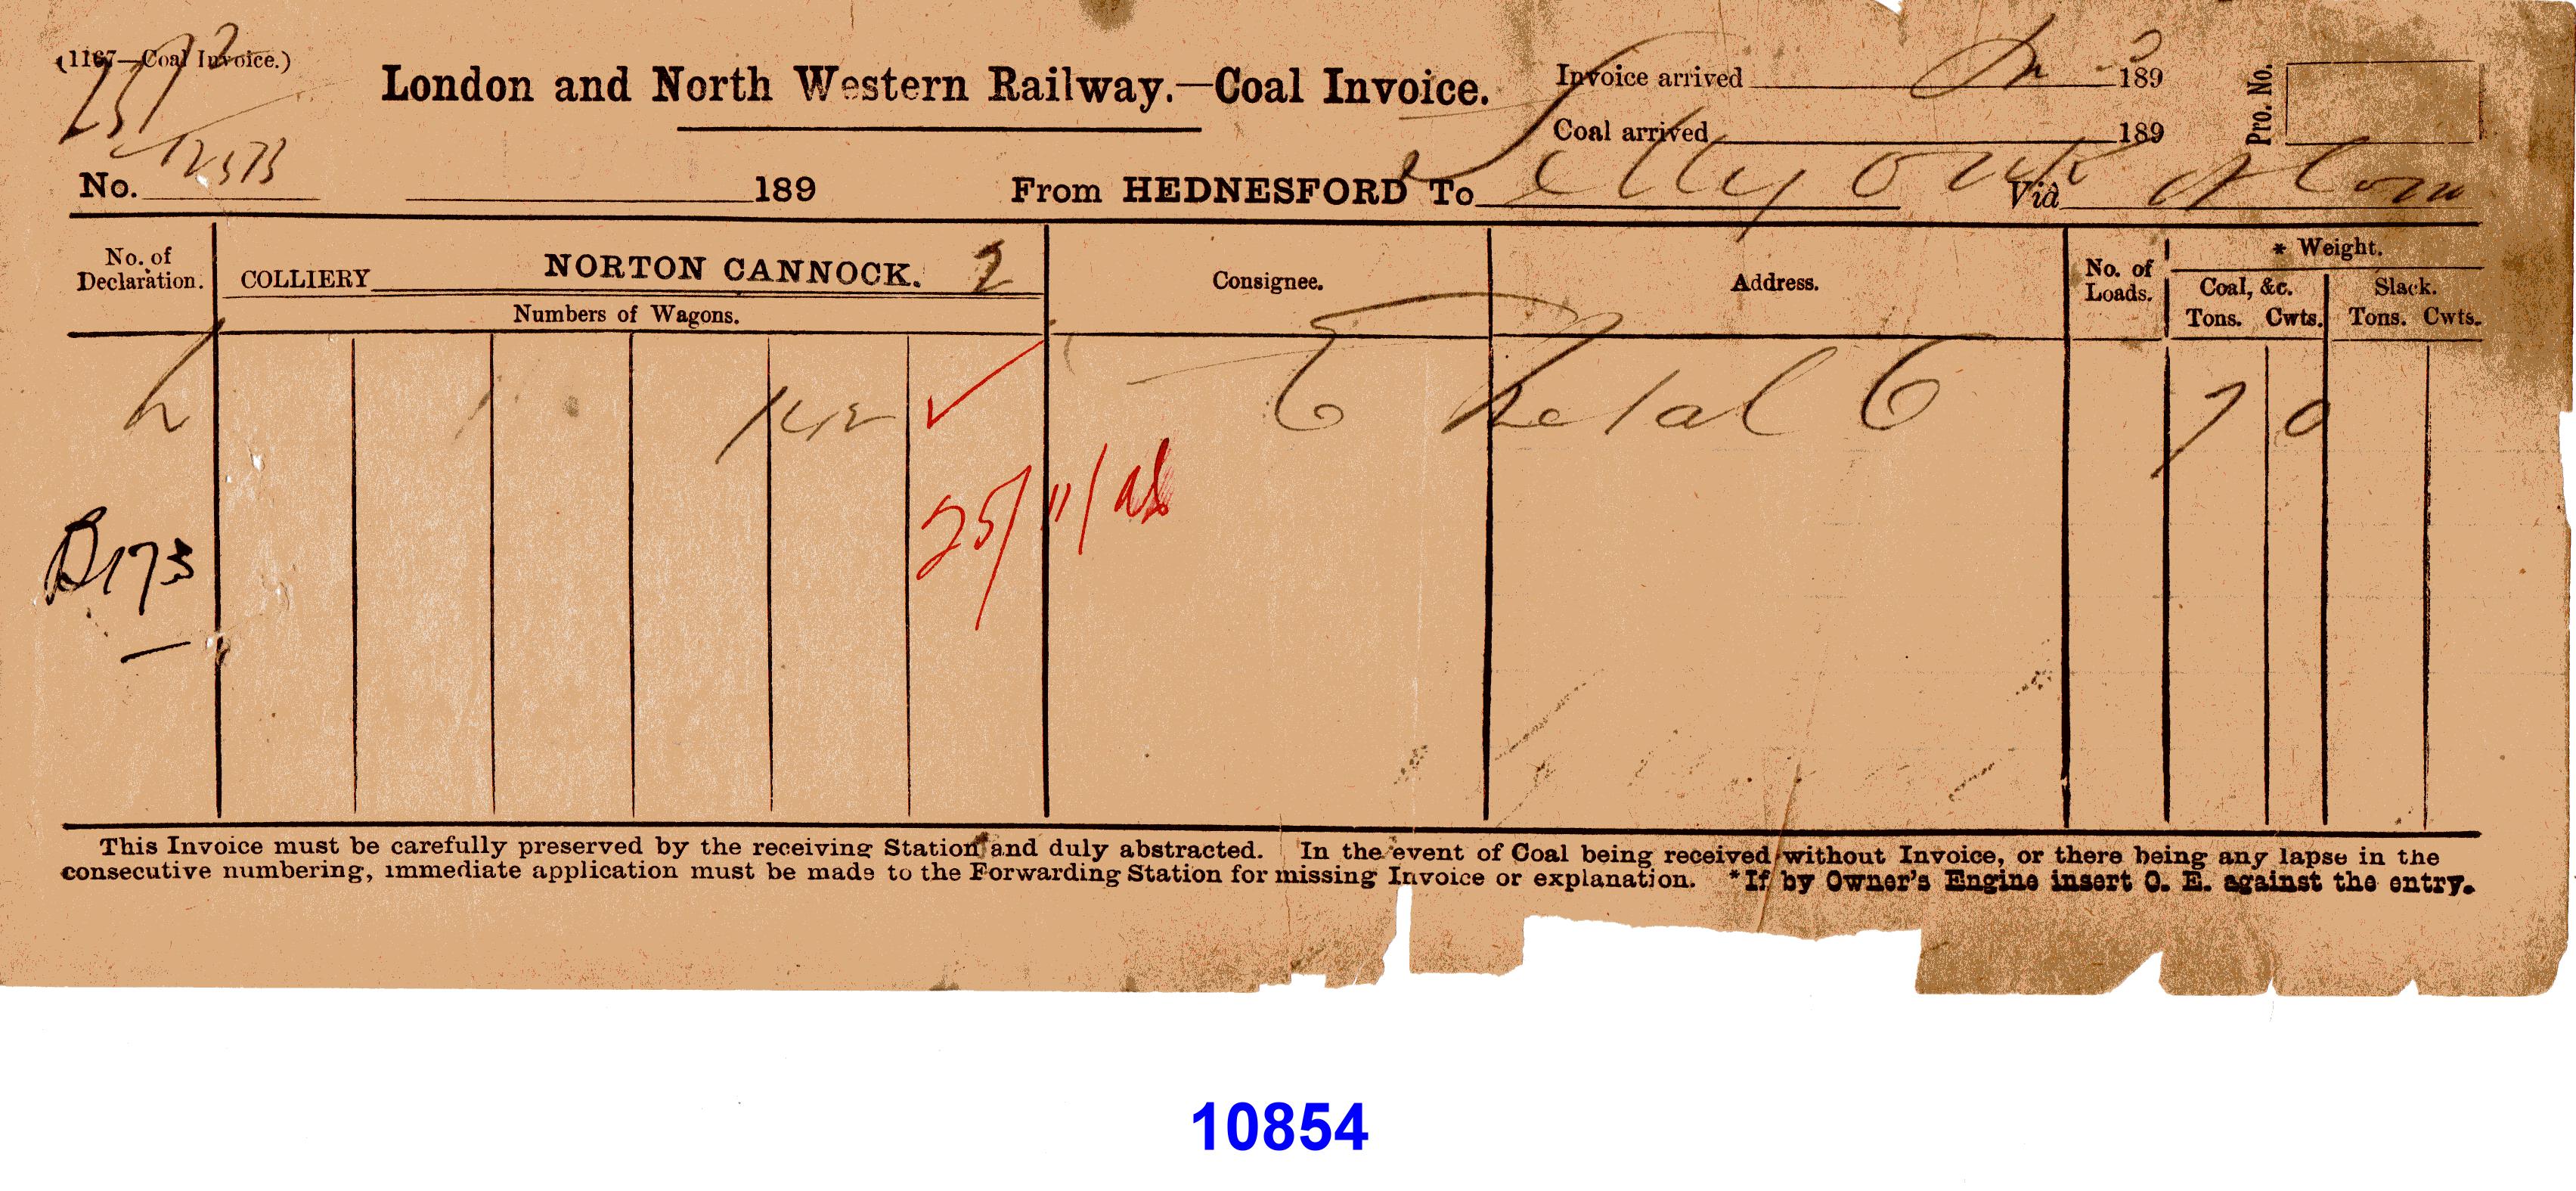 (1167—Coal Invoice.)
London and North Western Railway.—Coal Invoice.
Invoice arrived 189
Coal arrived 189
Pro. No.
No. 189 From HEDNESFORD To Selly Oak Via
No. of Declaration.
COLLIERY NORTON CANNOCK. 2
Numbers of Wagons.
Consignee.
Address.
No. of Loads.
* Weight.
Coal, &c.
Slack.
Tons. Cwts. Tons. Cwts.
E Metal C 7 0
25/11/
B173
This Invoice must be carefully preserved by the receiving Station and duly abstracted. In the event of Coal being received without Invoice, or there being any lapse in the
consecutive numbering, immediate application must be made to the Forwarding Station for missing Invoice or explanation. *If by Owner's Engine insert O. E. against the entry.
10854